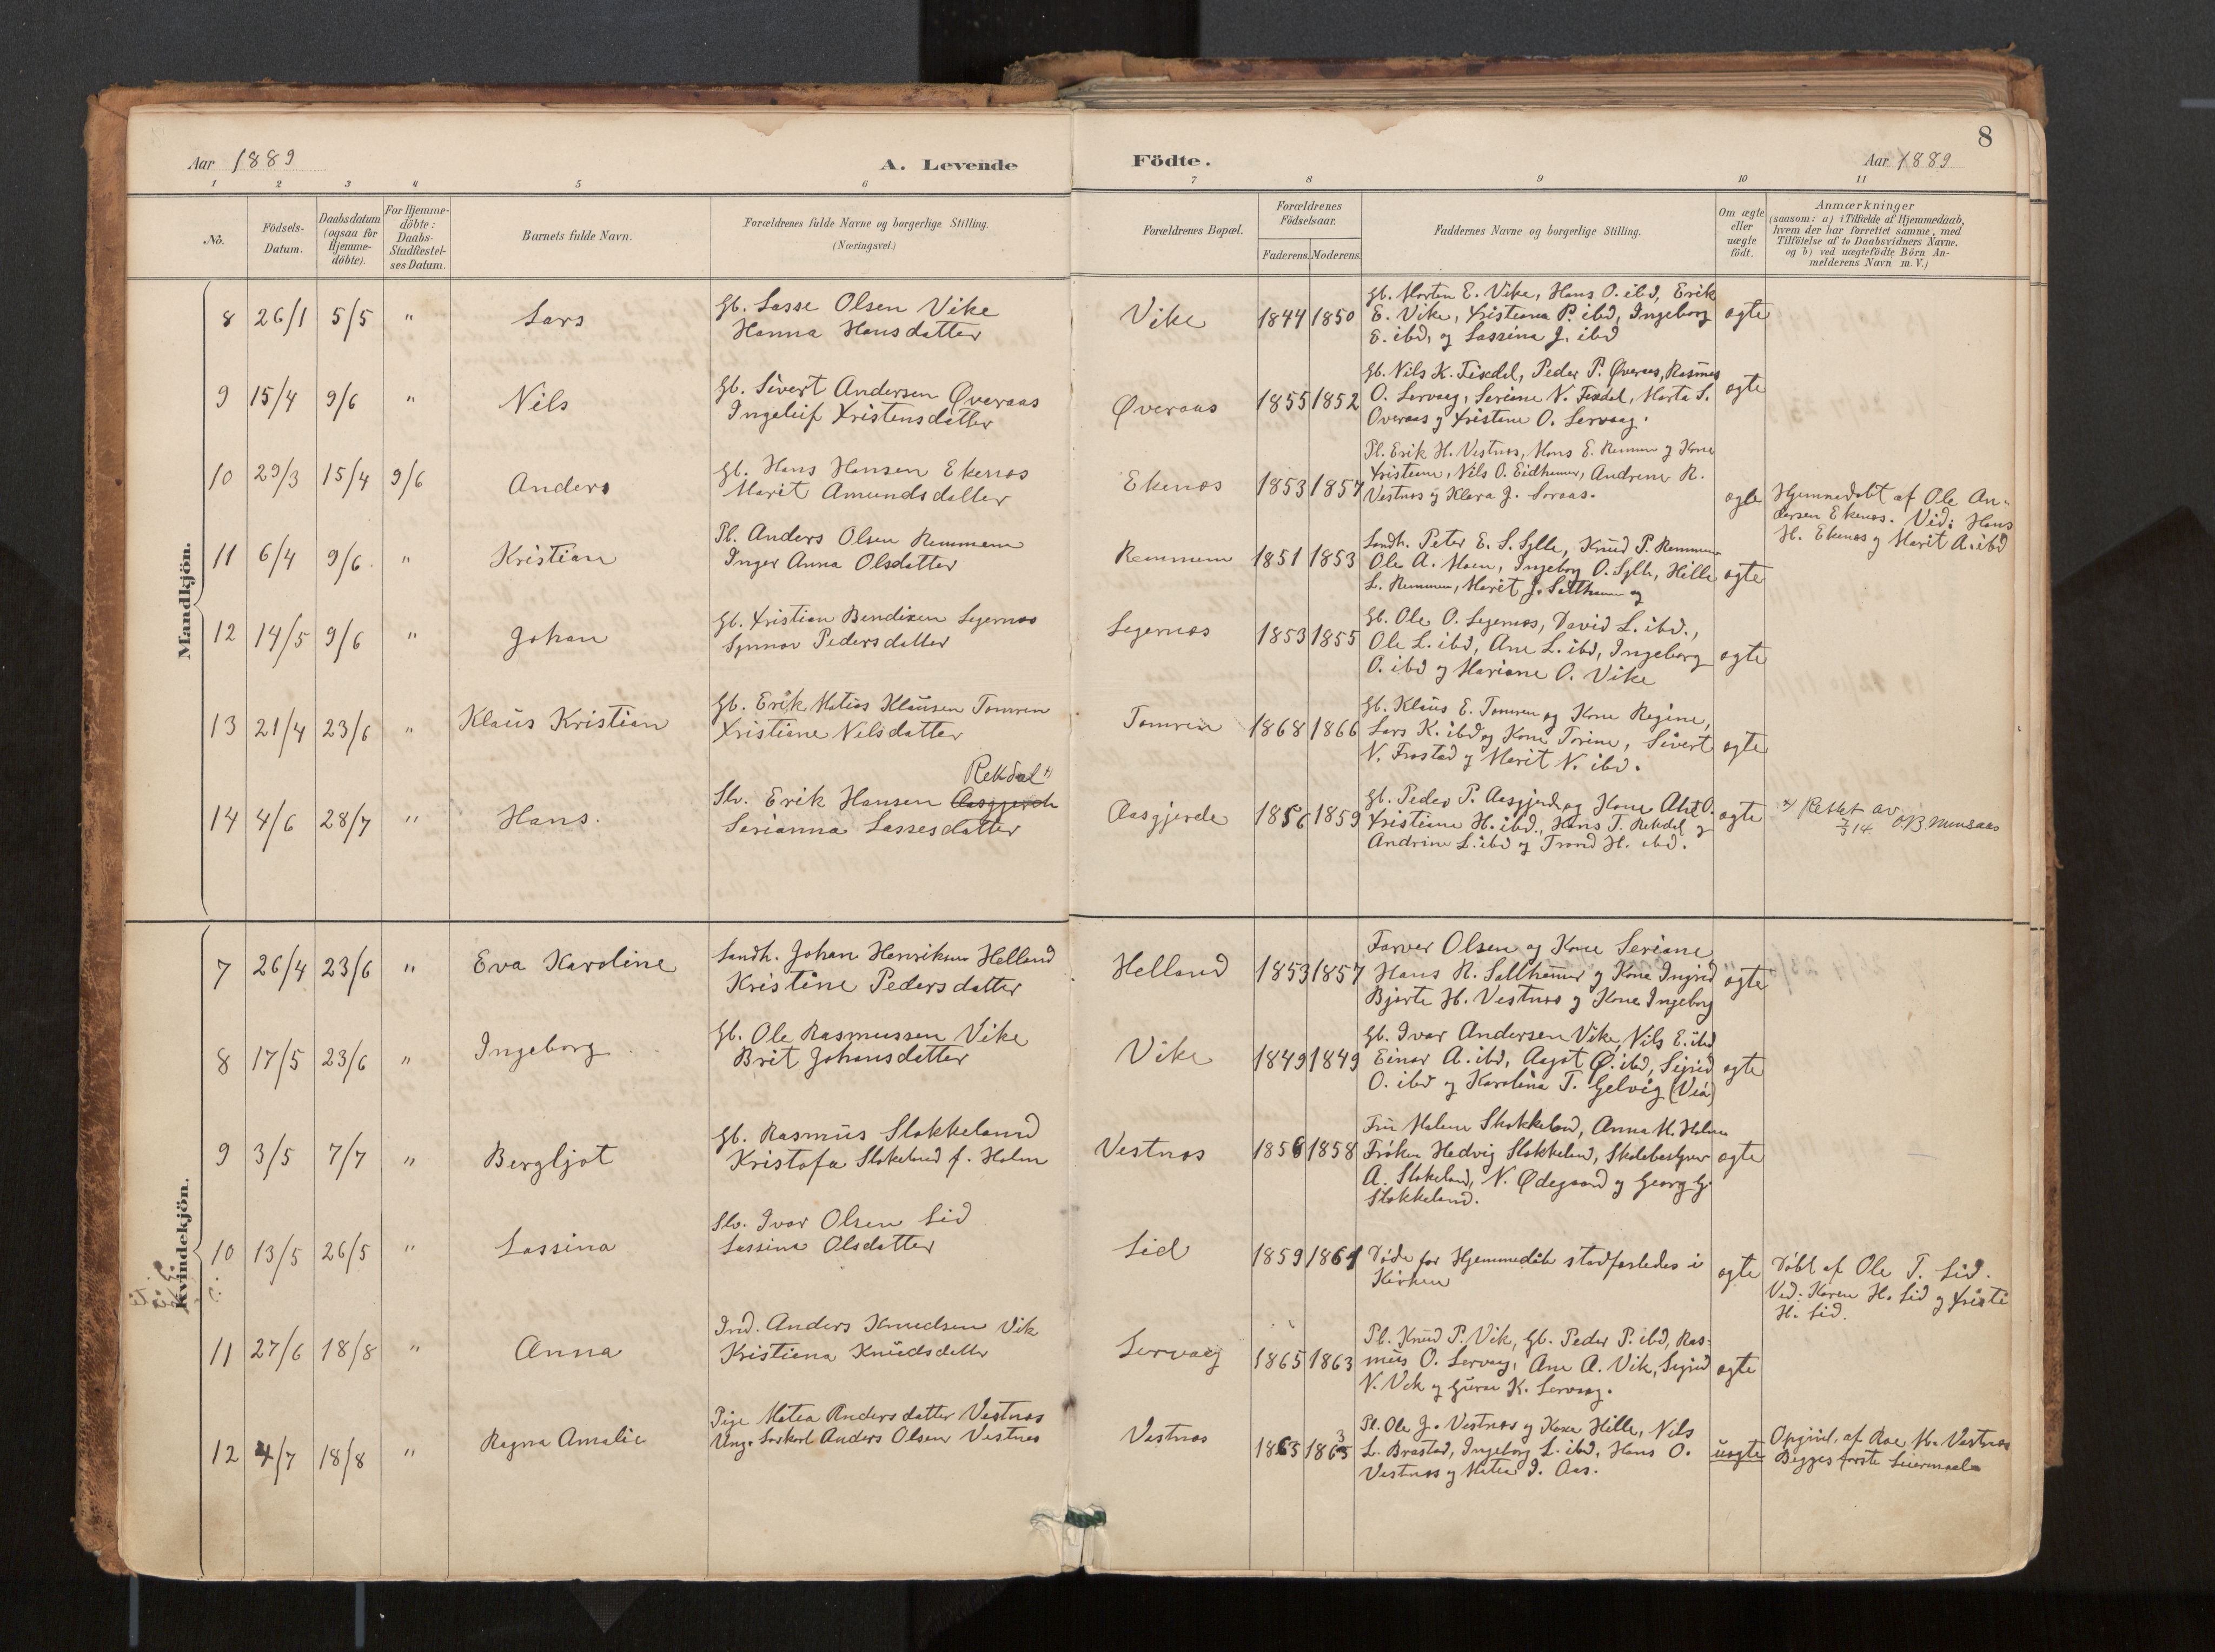 8
Aar 1889
A. Levende
Födte.
Aar 1889
1 2 3 4 5 6 7 8 9 10 11
No.
Födsels-Datum.
Daabsdatum (ogsaa for Hjemme-döbte).
For Hjemme-döbte: Daabs-Stadfæstel-ses Datum.
Barnets fulde Navn.
Forældrenes fulde Navne og borgerlige Stilling.
(Næringsvei.)
Forældrenes Bopæl.
Forældrenes Födselsaar.
Faderens. Moderens.
Faddernes Navne og borgerlige Stilling.
Om ægte eller uægte födt.
Anmærkninger
(saasom: a) i Tilfælde af Hjemmedaab,
hvem der har forrettet samme, med
Tilföielse af to Daabsvidners Navne.
og b) ved uægtefödte Börn An-
melderens Navn m. V.)
Mandkjön.
8 26/1 5/5 " Lars
Gb. Lasse Olsen Vike
Hanna Hansdatter
Vike 1844 1850
Gb. Morten E. Vike, Hans O. ibd, Erik
E. Vike, Kristiana P. ibd, Ingeborg
E. ibd, og Lassina J. ibd
ægte
9 15/4 9/6 " Nils
Gb. Sivert Andersen Øveraas
Ingeleif Kristensdatter
Øveraas 1855 1852
Gb. Nils K. Fixdal, Peder P. Øveraas, Rasmus
O. Lervaag, Seriane N. Fixdal, Marta S.
Overaas og Kristane O. Lervaag.
ægte
10 29/3 15/4 9/6 Anders
Gb. Hans Hansen Ekenæs
Marit Amundsdatter
Ekenæs 1853 1857
Pl. Erik H. Vestnæs, Mons E. Remmem og Kone
Kristiane, Nils O. Eidhamer, Andrine R.
Vestnæs og Klara J. Soraas.
ægte
Hjemmedøbt af Ole An-
dersen Ekenæs. Vid: Hans
H. Ekenæs og Marit A. ibd
11 6/4 9/6 " Kristian
Pl. Anders Olsen Remmem
Inger Anna Olsdatter
Remmem 1851 1853
Landh. Peter E. S. Sylte, Knud P. Remmem
Ole A. Moen, Ingeborg O. Sylte, Hille
L. Remmem, Marit J. Salthamer og
ægte
12 14/5 9/6 " Johan
Gb. Kristian Bendixen Legernæs
Synnøv Pedersdatter
Legernæs 1853 1855
Gb. Ole O. Legernæs, David L. ibd.,
Ole L. ibd, Ane L. ibd, Ingeborg
O. ibd og Mariane O. Vike
ægte
13 21/4 23/6 " Klaus Kristian
Gb. Erik Matias Klausen Tomren
Kristiane Nilsdatter
Tomren 1868 1866
Gb. Klaus E. Tomren og Kone Regine,
Lars K. ibd og Kone Torine, Sivert
N. Frostad og Marit N. ibd.
ægte
Rekdal
14 4/6 28/7 " Hans.
Slv. Erik Hansen Aasgjerde
Serianna Lassesdatter
Aasgjerde 1856 1859
Gb. Peder P. Aasgjerde og Kone Ahst O.
Kristiane H. ibd., Hans T. Rekdal og
Andrine L. ibd og Trond H. ibd.
ægte
x) Rettet av
7/3 14
Kvindekjön.
7 26/4 23/6 " Eva Karoline
Landh. Johan Henriksen Helland
Kristine Pedersdatter
Helland 1853 1857
Farver Olsen og Kone Seriane
Hans R. Salthamer og Kone Ingrid
Bjørte H. Vestnæs og Kone Ingeborg
ægte
8 17/5 23/6 " Ingeborg
Gb. Ole Rasmussen Vike
Brit Johansdatter
Vike 1849 1849
Gb. Ivar Andersen Vike, Nils E. ibd
Einar A. ibd, Aagot Ø. ibd, Sigrid
O. ibd og Karolina T. Gjelvig (Veø)
ægte
9 3/5 7/7 " Bergljot
Gb. Rasmus Stokkeland
Kristofa Stokeland f. Holm
Vestnæs 1856 1858
Fru Malene Stokkeland, Anna M. Holm
Frøken Hedvig Stokkeland, Skolebestyrer
A. Stokeland, N. Ødegaard og Georg G.
Stokkeland.
ægte
10 13/5 26/5 " Lassina
Slv. Ivar Olsen Lid
Lassina Olsdatter
Lid 1859 1861
Døde før Hjemmedåb stadfæstedes i
Kirken
ægte
Døbt af Ole T. Lid.
Vid: Karen H. Lid og Kristi
H. Lid.
11 27/6 18/8 " Anna
Ind. Anders Knudsen Vik
Kristiana Knudsdatter
Lervaag 1865 1863
Pl. Knud P. Vik, Gb. Peder P. ibd, Ras-
mus O. Lervaag, Ane A. Vik, Sigrid
N. Vik og Guru K. Lervaag.
ægte
12 4/7 18/8 " Ragna Amalie
Pige Matea Andersdatter Vestnæs
Ung. Anders Olsen Vestnes
Vestnæs 1863 1865 3
Pl. Ole J. Vestnæs og Kone Hille, Nils
L. Brastad, Ingeborg L. ibd, Hans O.
Vestnæs og Matea I. Aas.
uægte
Opgivet af Vestnæs
Begges første Leiermaal